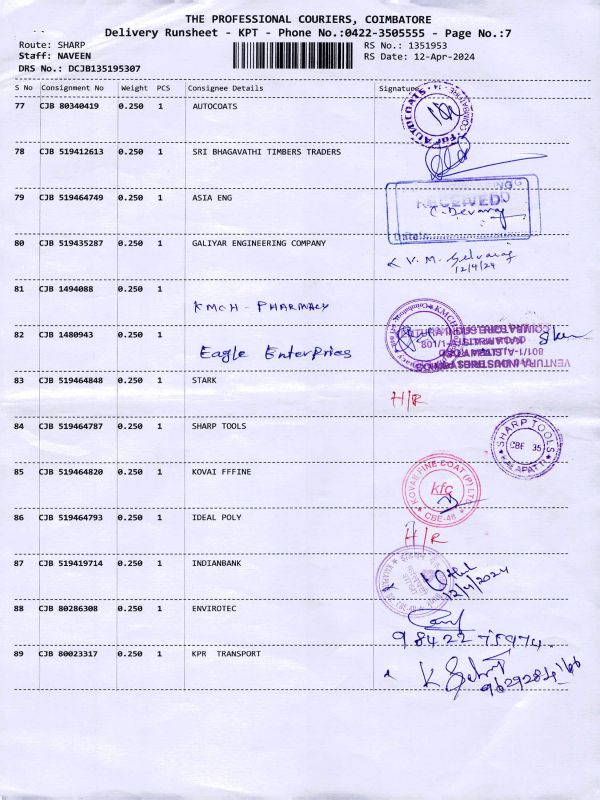 THE PROFESSIONAL COURIERS, COIMBATORE
Delivery Runsheet - KPT - Phone No.:0422-3505555 - Page No.:7
Route: SHARP RS No.: 1351953
Staff: NAVEEN RS Date: 12-Apr-2024
DRS No.: DCJB135195307
S No Consignment No Weight PCS Consignee Details Signature
77 CJB 80340419 0.250 1 AUTOCOATS
AUTOCOATS
78 CJB 519412613 0.250 1 SRI BHAGAVATHI TIMBERS TRADERS
79 CJB 519464749 0.250 1 ASIA ENG
RECEIVED
C. Devaraj
Date
80 CJB 519435287 0.250 1 GALIYAR ENGINEERING COMPANY
V. M. Selvaraj
12/4/24
81 CJB 1494088 0.250 1 KMCH - PHARMACY
82 CJB 1480943 0.250 1 Eagle Enterprises
83 CJB 519464848 0.250 1 STARK H/R
84 CJB 519464787 0.250 1 SHARP TOOLS
SHARP TOOLS
CBE 35
KALAPATTI
85 CJB 519464820 0.250 1 KOVAI FFFINE
KOVAI FINE COAT (P) LTD
kfc
CBE-48
86 CJB 519464793 0.250 1 IDEAL POLY H/R
87 CJB 519419714 0.250 1 INDIANBANK
12/4/2024
88 CJB 80286308 0.250 1 ENVIROTEC
89 CJB 80023317 0.250 1 KPR TRANSPORT